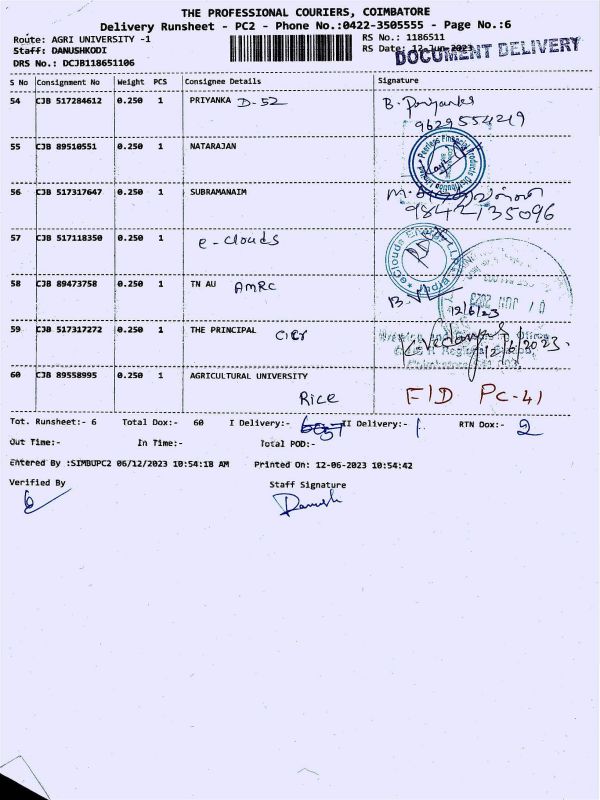 THE PROFESSIONAL COURIERS, COIMBATORE
Delivery Runsheet - PC2 - Phone No.:0422-3505555 - Page No.:6
Route: AGRI UNIVERSITY -1
RS No.: 1186511
Staff: DANUSHKODI
RS Date: 12-Jun-2023
DOCUMENT DELIVERY
DRS No.: DCJB118651106
S No Consignment No Weight PCS Consignee Details Signature
54 CJB 517284612 0.250 1 PRIYANKA D-52 B. Priyanka
9629554219
55 CJB 89510551 0.250 1 NATARAJAN
56 CJB 517317647 0.250 1 SUBRAMANAIM
9842135096
57 CJB 517118350 0.250 1 e-clouds
58 CJB 89473758 0.250 1 TN AU AMRC
12/6/23
59 CJB 517317272 0.250 1 THE PRINCIPAL
12/6/2023.
60 CJB 89558995 0.250 1 AGRICULTURAL UNIVERSITY
Rice FID PC-41
Tot. Runsheet:- 6 Total Dox:- 60 I Delivery:- II Delivery:- 1 RTN Dox:- 2
Out Time:- In Time:- Total POD:-
Entered By :SIMBUPC2 06/12/2023 10:54:18 AM Printed On: 12-06-2023 10:54:42
Verified By Staff Signature
Danush